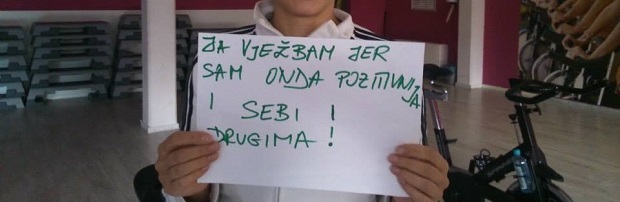 JA VJEŽBAM JER
SAM ONDA POZITIVNIJA
I SEBI I
DRUGIMA!